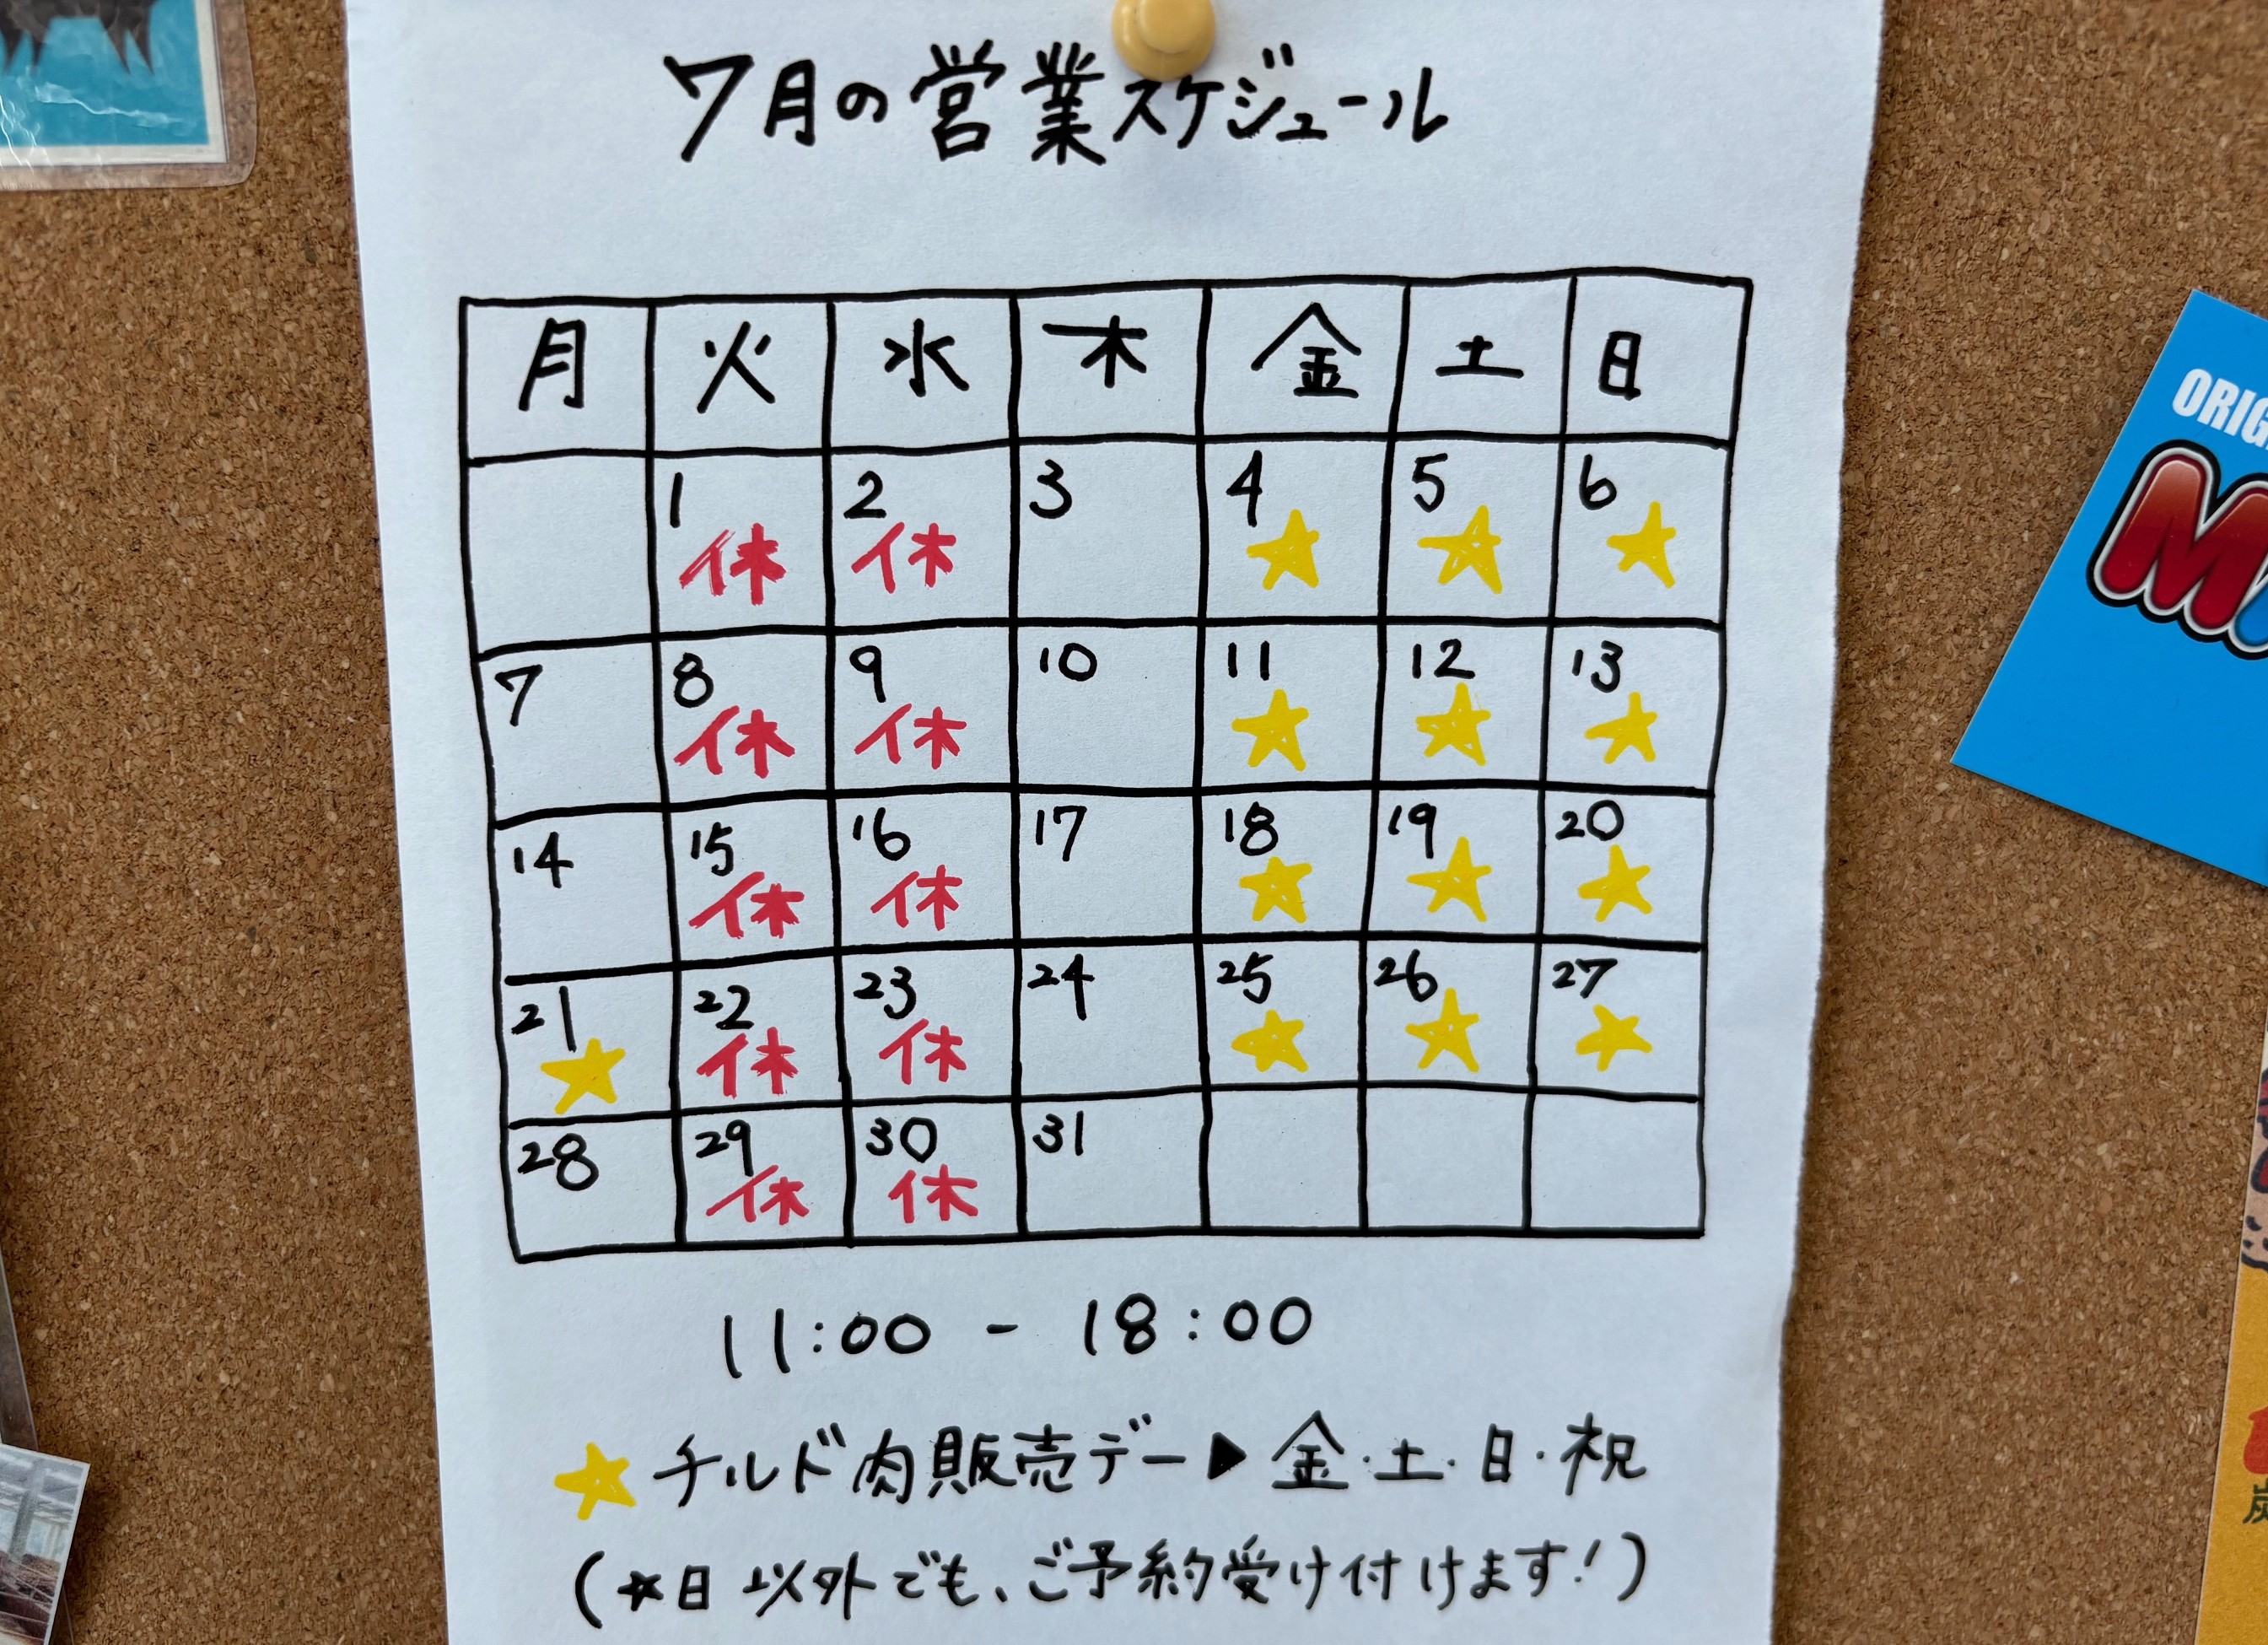 7月の営業スケジュール
月 火 水 木 金 土 日
1 2 3 4 5 6
休 休 ★ ★ ★
7 8 9 10 11 12 13
休 休 ★ ★ ★
14 15 16 17 18 19 20
休 休 ★ ★ ★
21 22 23 24 25 26 27
★ 休 休 ★ ★ ★
28 29 30 31
休 休
11:00 - 18:00
★チルド肉販売デー▶金・土・日・祝
(★日以外でも、ご予約受け付けます!)
ORIG
M
炭